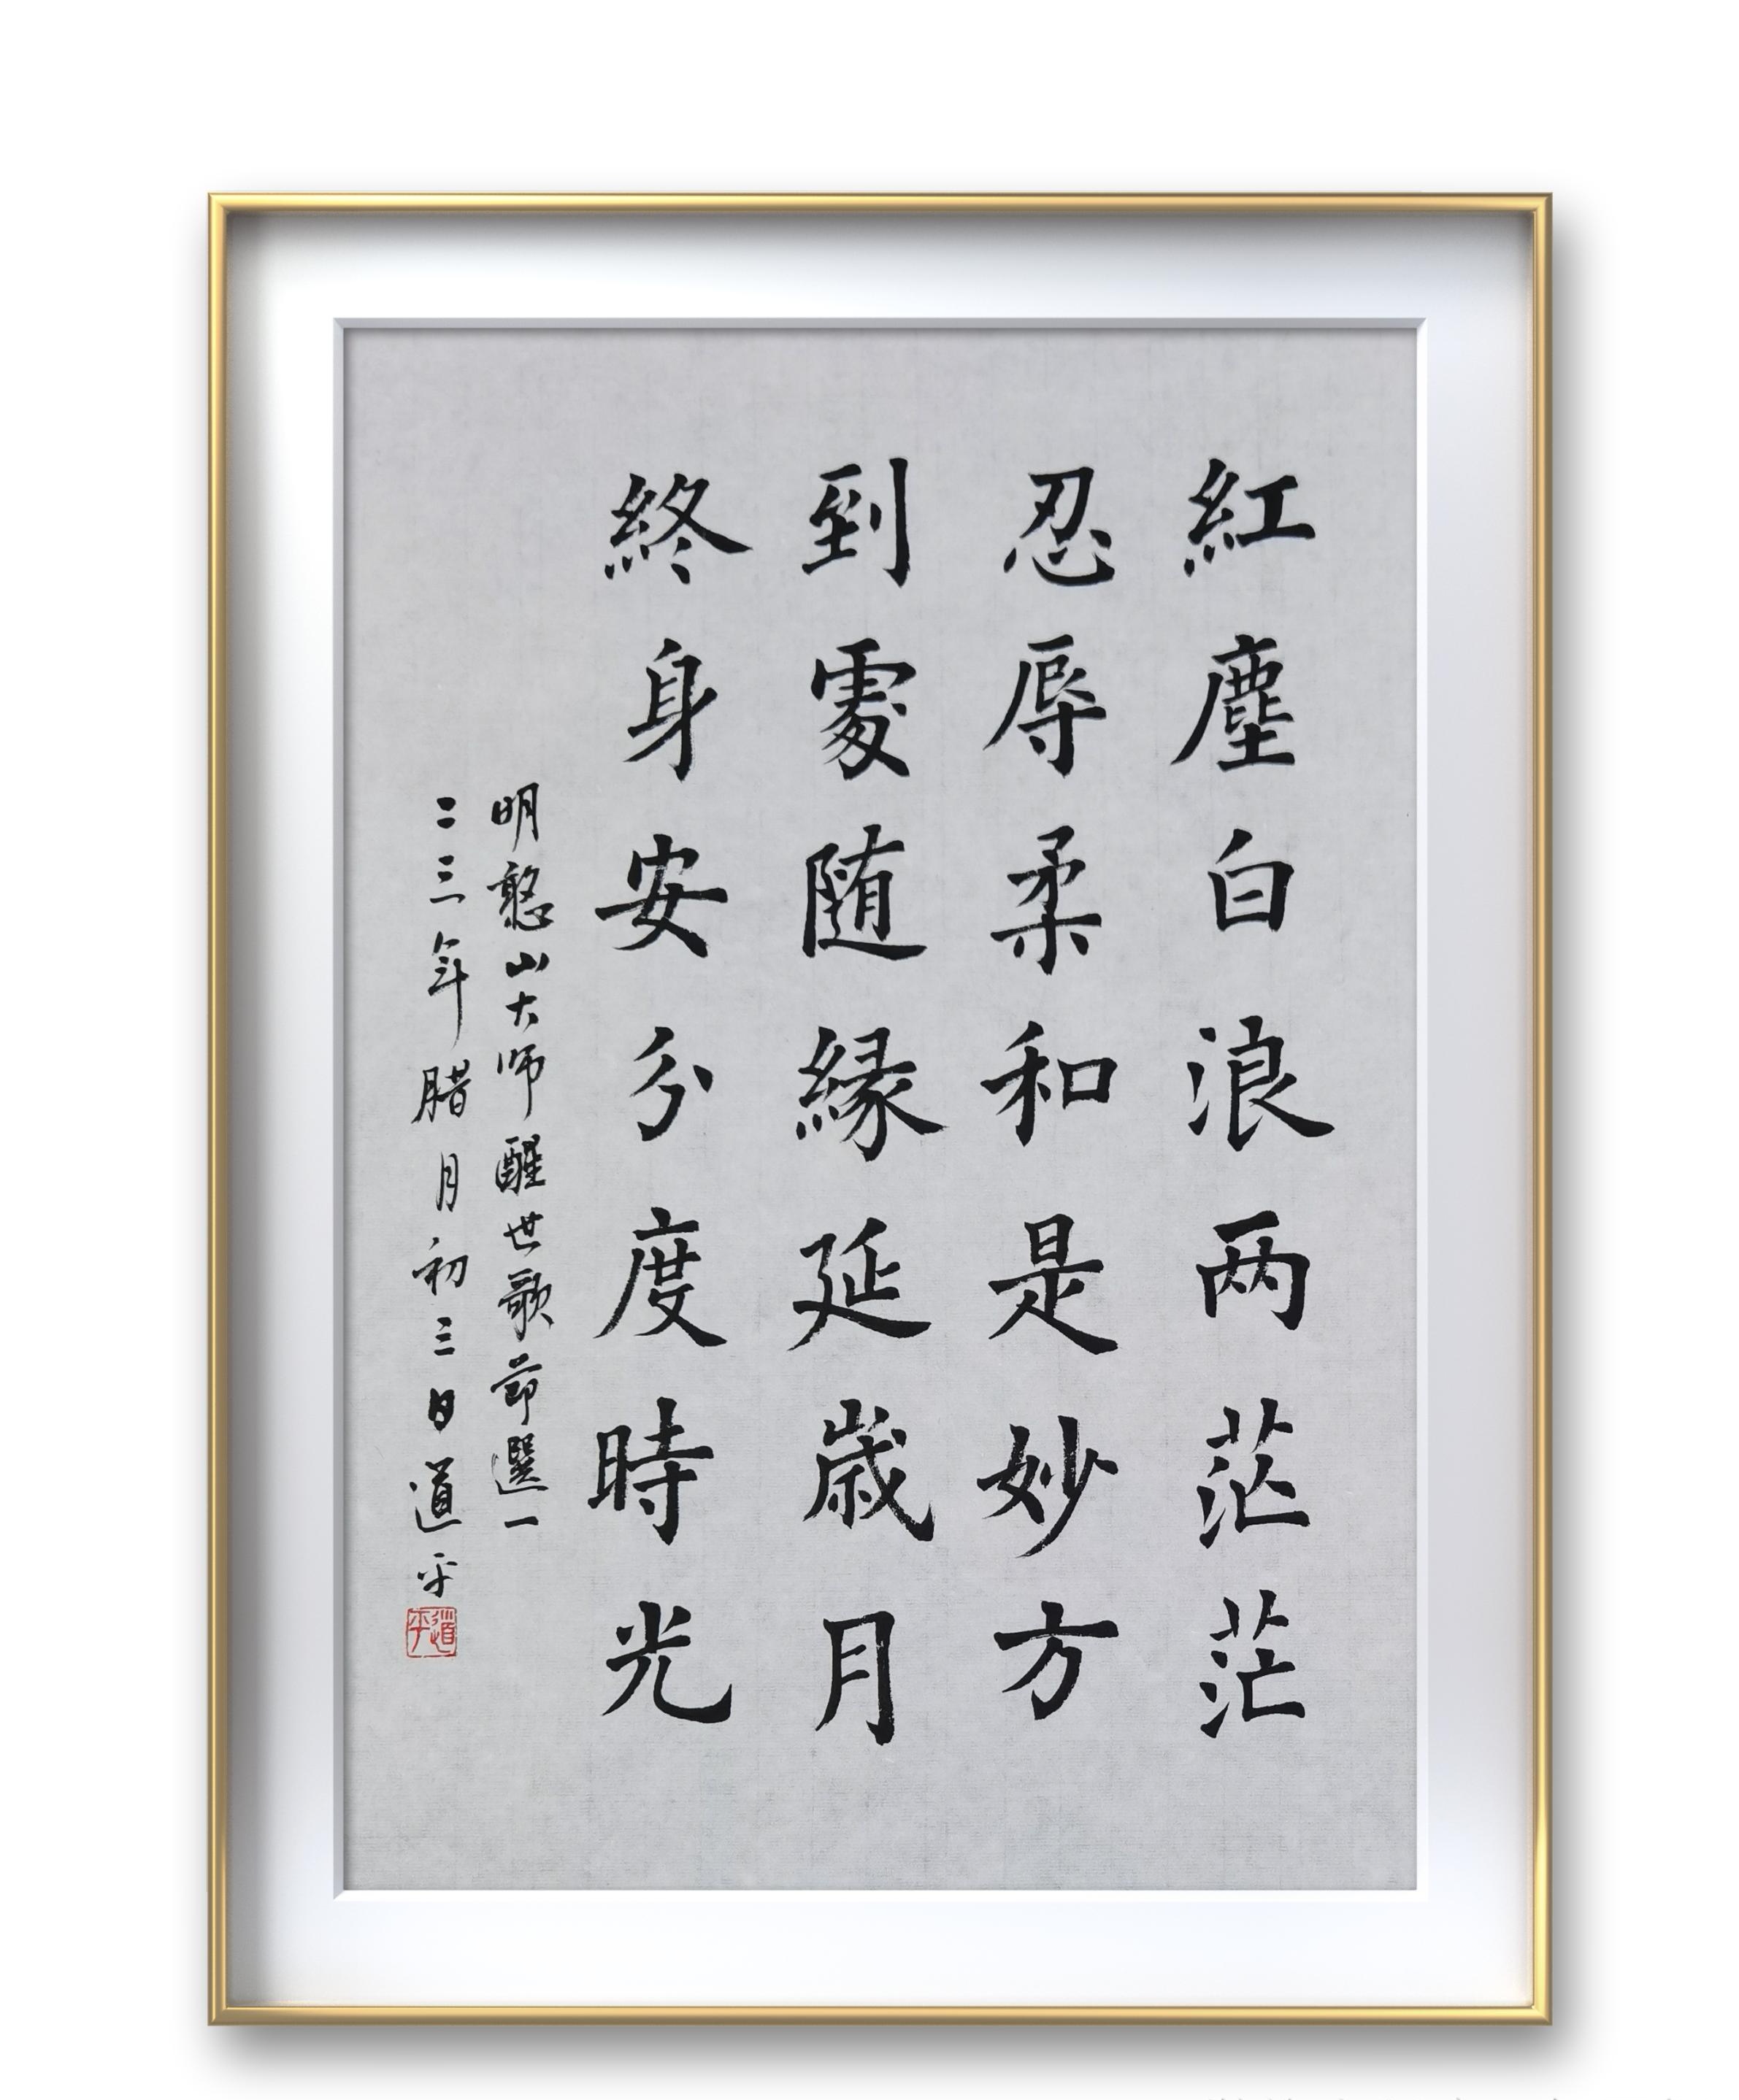 紅塵白浪两茫茫
忍辱柔和是妙方
到處随緣延歳月
終身安分度時光
明憨山大师醒世歌節選一
二三年腊月初三日道平
道平